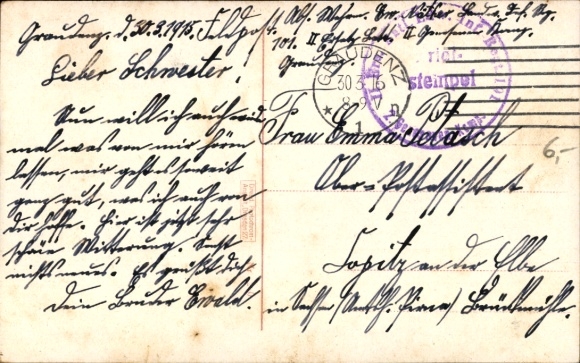 Graudenz, d. 30.3.1915.
Feldpost
Lieber Schwester!
Nun will ich auch wied
mal was von mir hören
lassen, mir geht es soweit
ganz gut, was ich auch von
Dir hoffe. Hier ist jetzt sehr
schöne Witterung. Sonst
nichts neues. Es grüßt dich
Dein Bruder Ewald.
Abs. Wehrm. Ew.
101. II
Graudenz.
GRAUDENZ
30.3.15
8-9V
* 1 n
Brief-
stempel
Frau Emma
Ober-Postassistent
Copitz an der Elbe
in Sachsen (Amtsh. Pirna) Brückmühle.
6,-